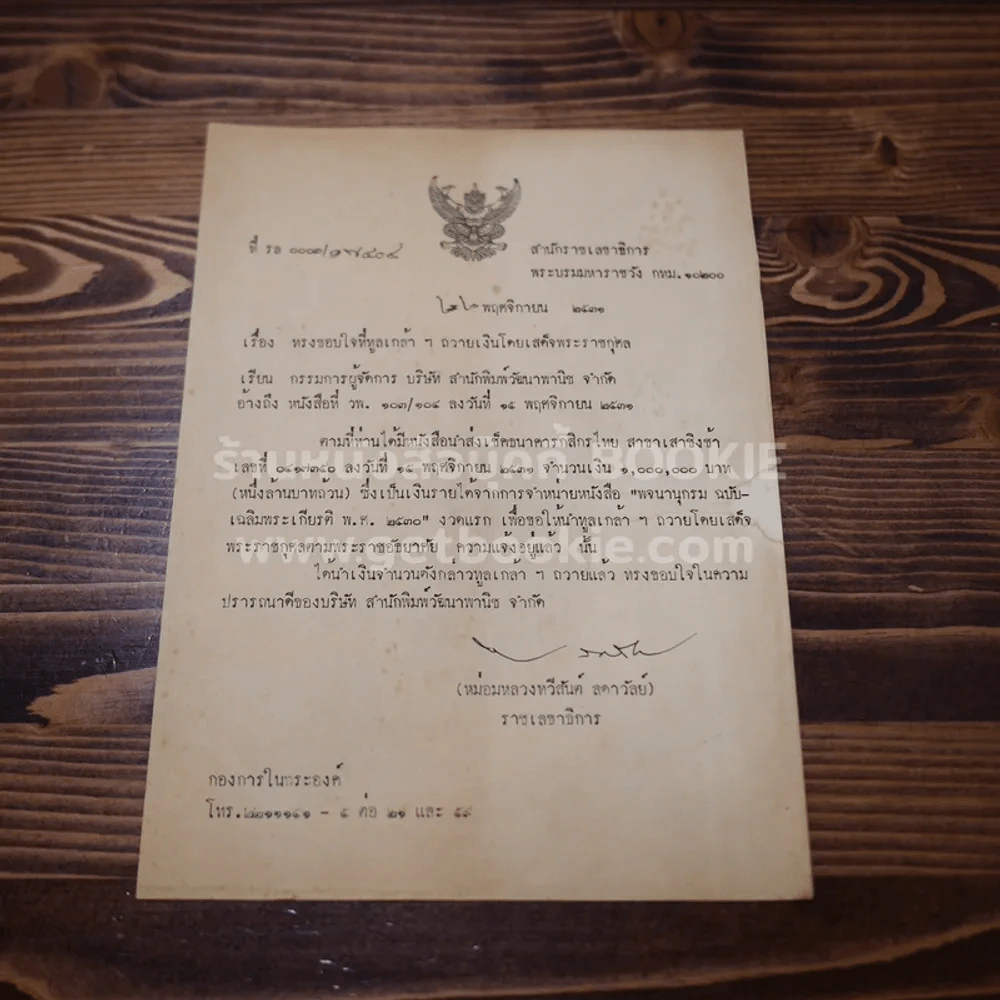 ที่ รล ๐๐๐๓/๑๗๕๐๔
สำนักราชเลขาธิการ
พระบรมมหาราชวัง กทม.๑๐๒๐๐
๒๒ พฤศจิกายน ๒๕๓๑
เรื่อง ทรงขอบใจที่ทูลเกล้า ฯ ถวายเงินโดยเสด็จพระราชกุศล
เรียน กรรมการผู้จัดการ บริษัท สำนักพิมพ์วัฒนาพานิช จำกัด
อ้างถึง หนังสือที่ วพ. ๑๐๓/๑๐๔ ลงวันที่ ๑๕ พฤศจิกายน ๒๕๓๑
ตามที่ท่านได้มีหนังสือนำส่งเช็คธนาคารกสิกรไทย สาขาเสาชิงช้า
เลขที่ ๐๔๑๗๓๕๐ ลงวันที่ ๑๕ พฤศจิกายน ๒๕๓๑ จำนวนเงิน ๑,๐๐๐,๐๐๐ บาท
(หนึ่งล้านบาทถ้วน) ซึ่งเป็นเงินรายได้จากการจำหน่ายหนังสือ "พจนานุกรม ฉบับ-
เฉลิมพระเกียรติ พ.ศ. ๒๕๓๐" งวดแรก เพื่อขอให้นำทูลเกล้า ฯ ถวายโดยเสด็จ
พระราชกุศลตามพระราชอัธยาศัย ความแจ้งอยู่แล้ว นั้น
ได้นำเงินจำนวนดังกล่าวทูลเกล้า ฯ ถวายแล้ว ทรงขอบใจในความ
ปรารถนาดีของบริษัท สำนักพิมพ์วัฒนาพานิช จำกัด
(หม่อมหลวงทวีสันต์ ลดาวัลย์)
ราชเลขาธิการ
กองการในพระองค์
โทร.๒๒๑๑๑๕๑ - ๕ ต่อ ๒๑ และ ๔๙
ร้านหนังสือบุ๊คกี้ BOOKIE
www.getbookie.com